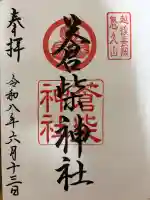 越後長岡
悠久山
奉拝
蒼柴神社
蒼柴
神社
令和八年六月十三日